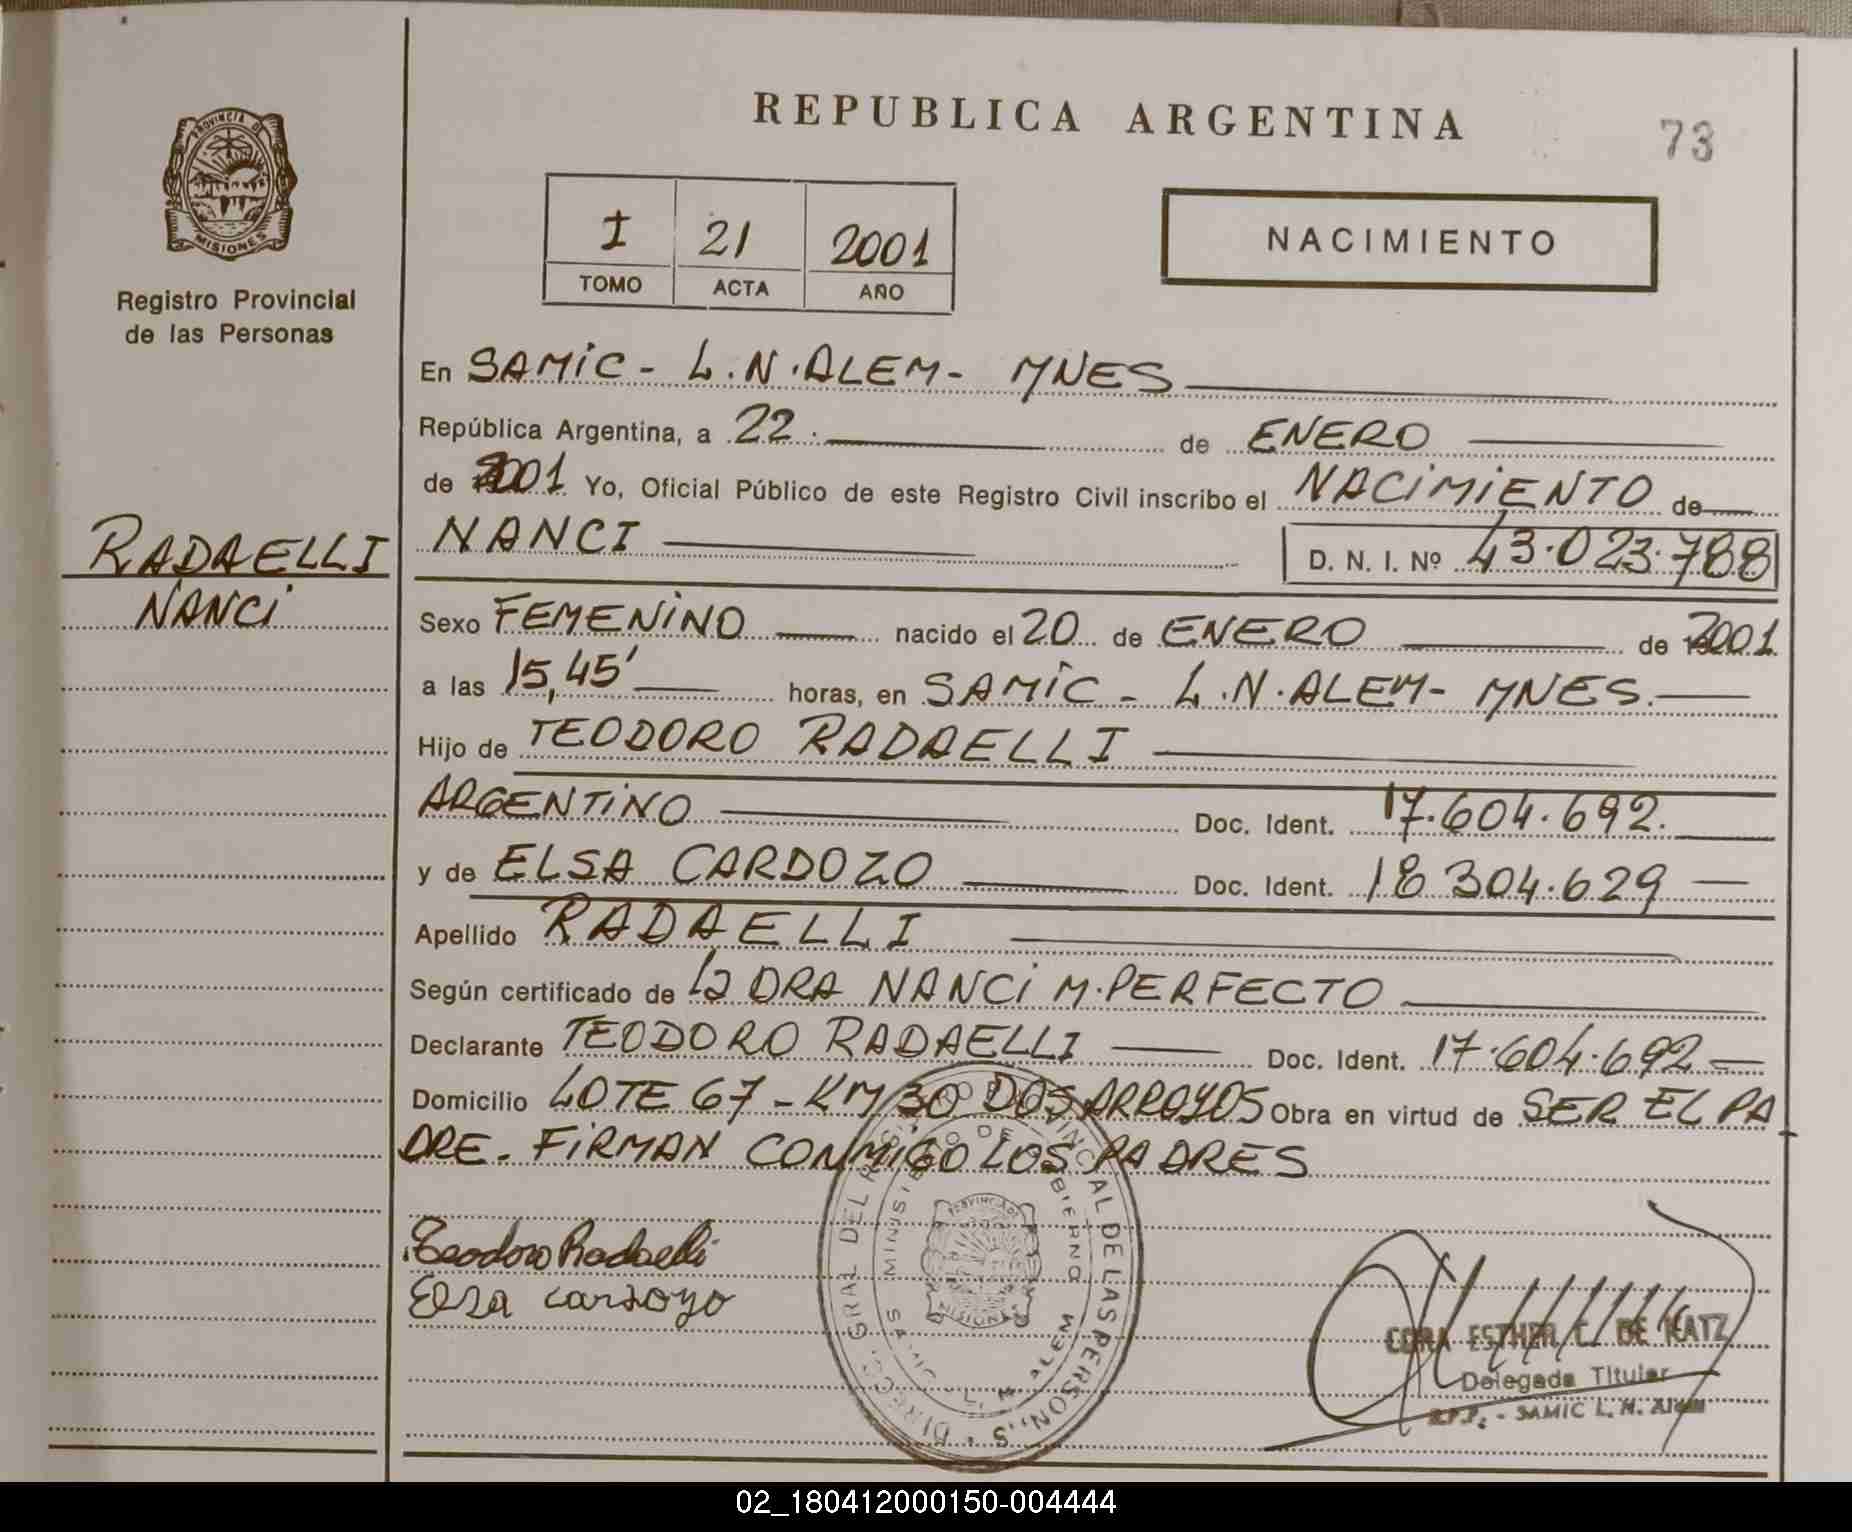 PROVINCIA D
MISIONES
Registro Provincial
de las Personas
RADAELLI
NANCI
REPUBLICA ARGENTINA
73
I 21 2001
TOMO ACTA AÑO
NACIMIENTO
En SAMIC - L.N.ALEM - MNES
República Argentina, a 22 de ENERO
de 2001 Yo, Oficial Público de este Registro Civil inscribo el NACIMIENTO de
NANCI D. N. I. Nº 43.023.788
Sexo FEMENINO nacido el 20 de ENERO de 2001
a las 15,45' horas, en SAMIC - L.N.ALEM - MNES.
Hijo de TEODORO RADAELLI
ARGENTINO Doc. Ident. 17.604.692.
y de ELSA CARDOZO Doc. Ident. 18 304.629
Apellido RADAELLI
Según certificado de la DRA NANCI M.PERFECTO
Declarante TEODORO RADAELLI Doc. Ident. 17.604.692
Domicilio LOTE 67 - KM 30 DOS ARROYOS Obra en virtud de SER EL PA
DRE. FIRMAN CONMIGO LOS PADRES
Teodoro Radaelli
Elsa cardozo
MINISTERIO DE GOBIERNO
SAMIC L. N. ALEM
CORA ESTHER C. DE KATZ
Delegada Titular
R.P.P. - SAMIC L. N. Alem
02_180412000150-004444